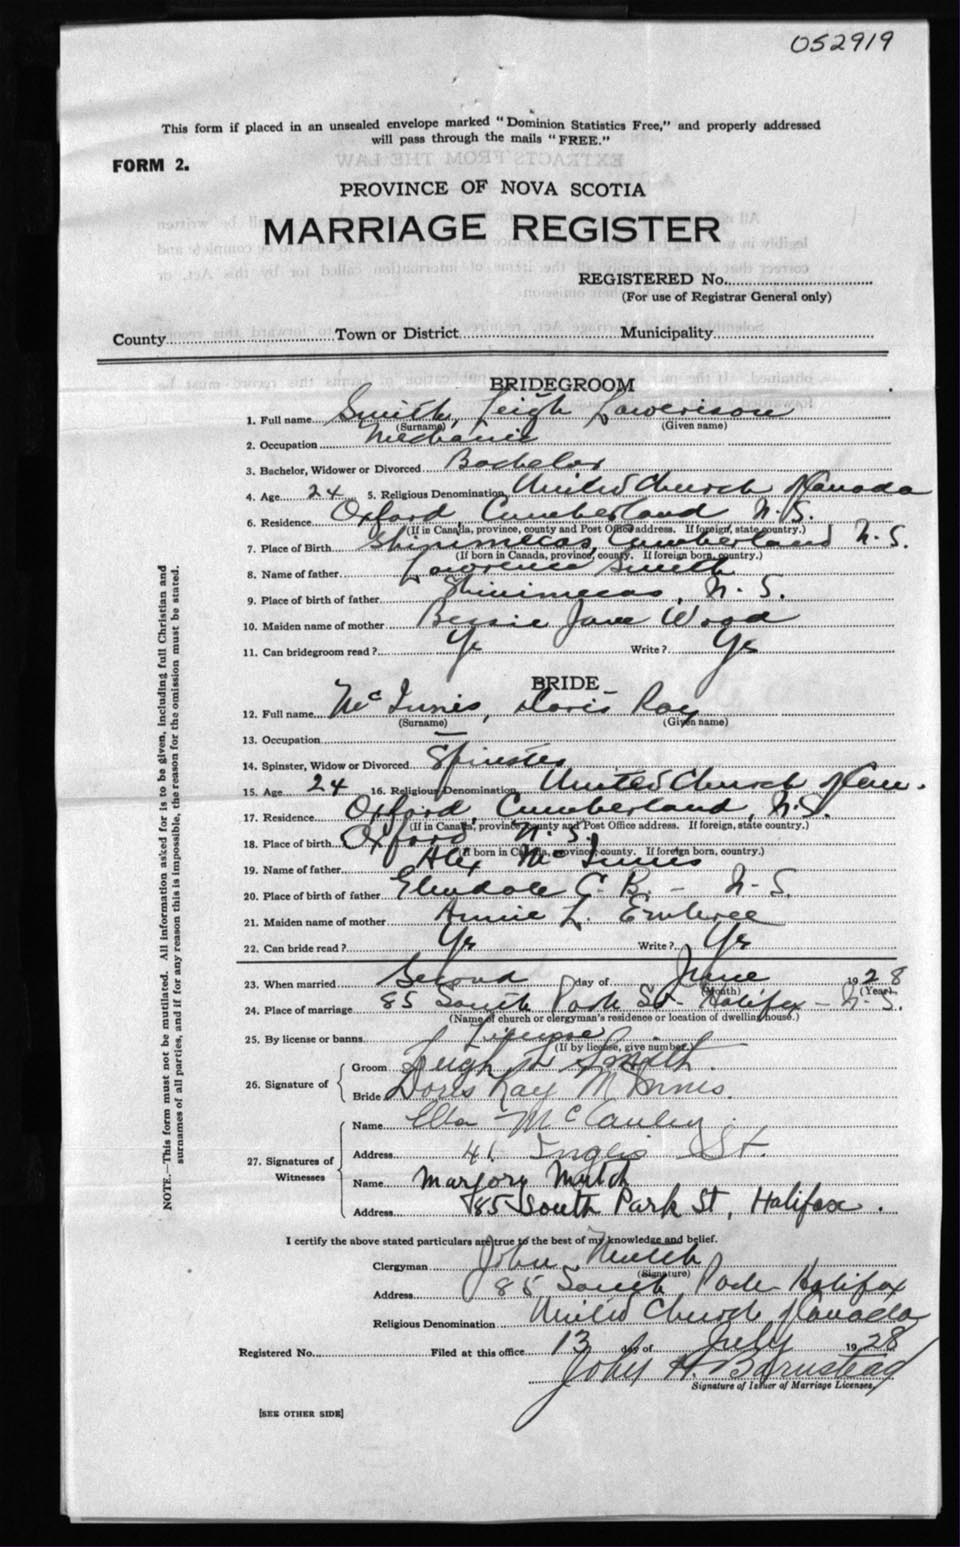 052919
This form if placed in an unsealed envelope marked "Dominion Statistics Free," and properly addressed
will pass through the mails "FREE."
FORM 2.
PROVINCE OF NOVA SCOTIA
MARRIAGE REGISTER
REGISTERED No.
(For use of Registrar General only)
County Town or District Municipality
BRIDEGROOM
1. Full name Smith, Leigh Lowerison
(Surname) (Given name)
2. Occupation Mechanic
3. Bachelor, Widower or Divorced Bachelor
4. Age 24 5. Religious Denomination United Church of Canada
6. Residence Oxford Cumberland N.S.
(If in Canada, province, county and Post Office address. If foreign, state country.)
7. Place of Birth Shinimecas, Cumberland N.S.
(If born in Canada, province, county. If foreign born, country.)
8. Name of father Lawrence Smith
9. Place of birth of father Shinimecas, N.S.
10. Maiden name of mother Bessie Jane Wood
11. Can bridegroom read? Yes Write? Yes
BRIDE
12. Full name McInnis, Doris Ray
(Surname) (Given name)
13. Occupation —
14. Spinster, Widow or Divorced Spinster
15. Age 24 16. Religious Denomination United Church of Can.
17. Residence Oxford, Cumberland, N.S.
(If in Canada, province, county and Post Office address. If foreign, state country.)
18. Place of birth Oxford N.S.
(If born in Canada, province, county. If foreign born, country.)
19. Name of father Alex McInnis
20. Place of birth of father Glendale C.B. – N-S.
21. Maiden name of mother Annie L. Embree
22. Can bride read? Yes Write? Yes
23. When married Second day of June 1928
(Month) (Year)
24. Place of marriage 85 South Park St Halifax – N.S.
(Name of church or clergyman's residence or location of dwelling house.)
25. By license or banns License
(If by license, give number.)
26. Signature of Groom Leigh L Smith.
Bride Doris Ray McInnis.
27. Signatures of Witnesses Name McCauley
Address 41 Inglis St.
Name Marjory Mutch
Address 85 South Park St, Halifax.
I certify the above stated particulars are true to the best of my knowledge and belief.
Clergyman John Mutch
(Signature)
Address 85 South Park Halifax
Religious Denomination United Church of Canada
Registered No. Filed at this office 13 day of July 1928
John H. Barnstead
Signature of Issuer of Marriage Licenses
[SEE OTHER SIDE]
NOTE.—This form must not be mutilated. All information asked for is to be given, including full Christian and
surnames of all parties, and if for any reason this is impossible, the reason for the omission must be stated.